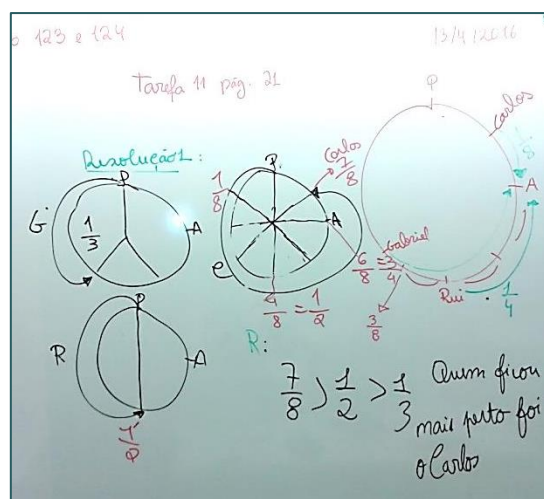 123 e 124
13/4/2016
Tarefa 11 pág. 21
Resolução 1:
P
G
1/3
A
P
R
A
1/2
P
1/8
Carlos
7/8
A
C
4/8 = 1/2
6/8 = 3/4
P
Carlos
1/8
A
Gabriel
Rui
1/4
3/8
R:
7/8 > 1/2 > 1/3 Quem ficou
mais perto foi
o Carlos